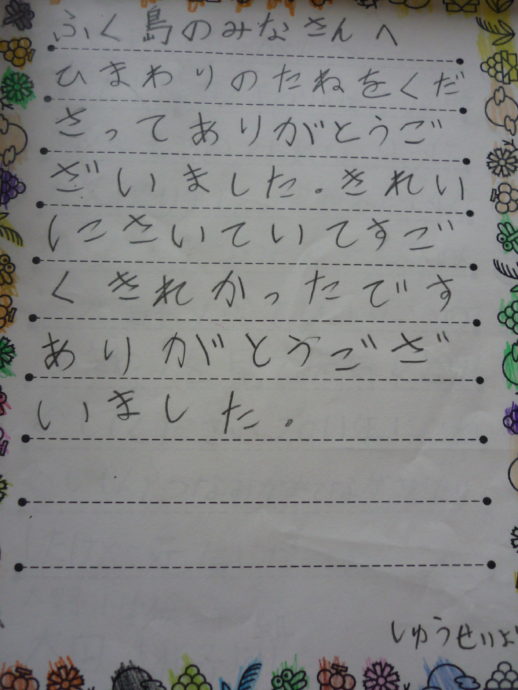 ふく島のみなさんへ
ひまわりのたねをくだ
さってありがとうご
ざいました。きれい
にさいていてすご
くきれかったです
ありがとうござ
いました。
しゅうせいより